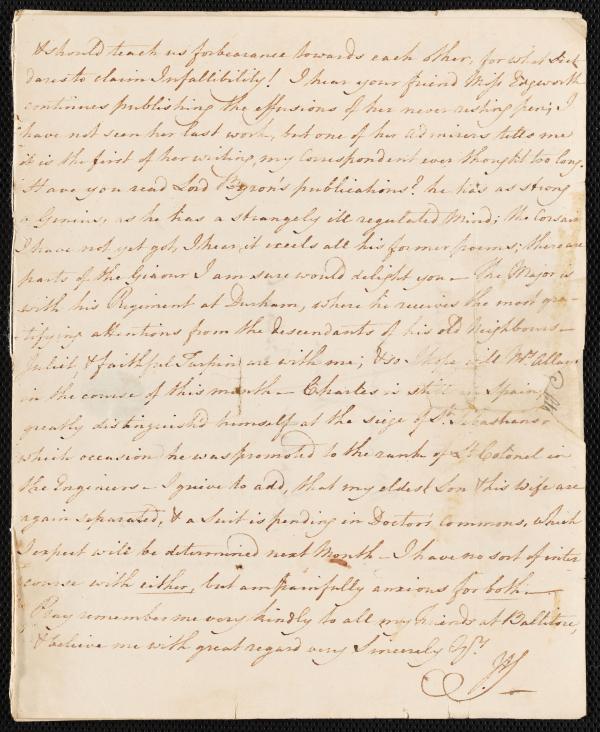 & should teach us forbearance towards each other, for what Sect
dares to claim Infallibility! I hear your friend Miss Edgworth
continues publishing the effusions of her never resting pen; I
have not seen her last work, but one of her admirers tells me
it is the first of her writing, my Correspondent ever thought too long.
Have you read Lord Byron's publications? he has as strong
a Genius, as he has a strangely ill regulated Mind; the Corsair
I have not yet got, I hear it excels all his former poems; there are
parts of the Giaour I am sure would delight you — The Major is
with his Regiment at Durham, where he receives the most gra-
tifying attentions from the descendants of his old Neighbours —
Juliet, & faithful Turpin are with me; & so I hope will Mr. Allan
in the course of this month — Charles is still in Spain,
greatly distinguish'd himself at the siege of St. Sebastians on
which occasion he was promoted to the rank of Lt. Colonel in
the Engineers — I grieve to add, that my eldest Son & his wife are
again separated, & a Suit is pending in Doctors Commons, which
I expect will be determined next Month — I have no sort of inter
course with either, but am painfully anxious for both —
Pray remember me very kindly to all my friends at Ballitore,
& believe me with great regard very Sincerely Yrs.